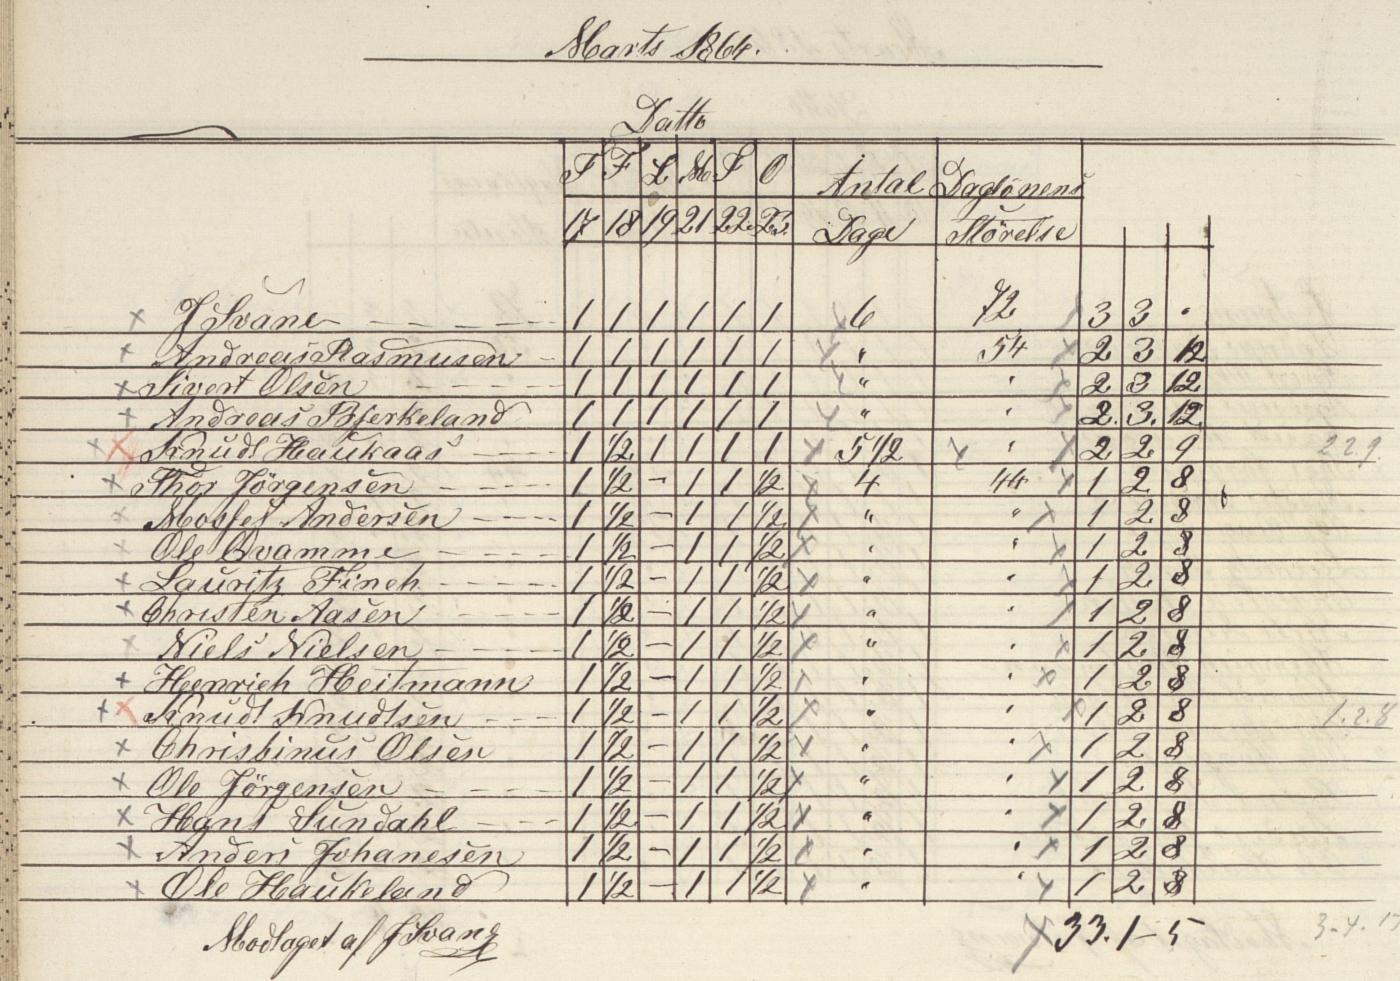 Marts 1864.
Datto
T F L M T O Antal Daglönens
17 18 19 21 22. 23. Dage Störelse
J Svane 1 1 1 1 1 1 6 72 3 3 "
Andreas Rasmusen 1 1 1 1 1 1 " 54 2 3 12
Sivert Olsen 1 1 1 1 1 1 " " 2 3 12
Andreas Bjerkeland 1 1 1 1 1 1 " " 2. 3. 12
Knudt Haukaas 1 1/2 1 1 1 1 5 1/2 " 2 2 9 2 2 9.
Thor Jörgensen 1 1/2 - 1 1 1/2 4 44 1 2 8
Mosses Andersen 1 1/2 - 1 1 1/2 " " 1 2 8
Ole Qvamme 1 1/2 - 1 1 1/2 " " 1 2 8
Lauritz Finch 1 1/2 - 1 1 1/2 " " 1 2 8
Christen Aasen 1 1/2 - 1 1 1/2 " " 1 2 8
Niels Nielsen 1 1/2 - 1 1 1/2 " " 1 2 8
Henrich Heitmann 1 1/2 - 1 1 1/2 " " 1 2 8
Knudt Knudtsen 1 1/2 - 1 1 1/2 " " 1 2 8 1. 2. 8
Christinus Olsen 1 1/2 - 1 1 1/2 " " 1 2 8
Ole Jörgensen 1 1/2 - 1 1 1/2 " " 1 2 8
Hans Sundahl 1 1/2 - 1 1 1/2 " " 1 2 8
Anders Johanesen 1 1/2 - 1 1 1/2 " " 1 2 8
Ole Haukeland 1 1/2 - 1 1 1/2 " " 1 2 8
Modtaget af J Svane 33. 1 - 5 3-4. 17